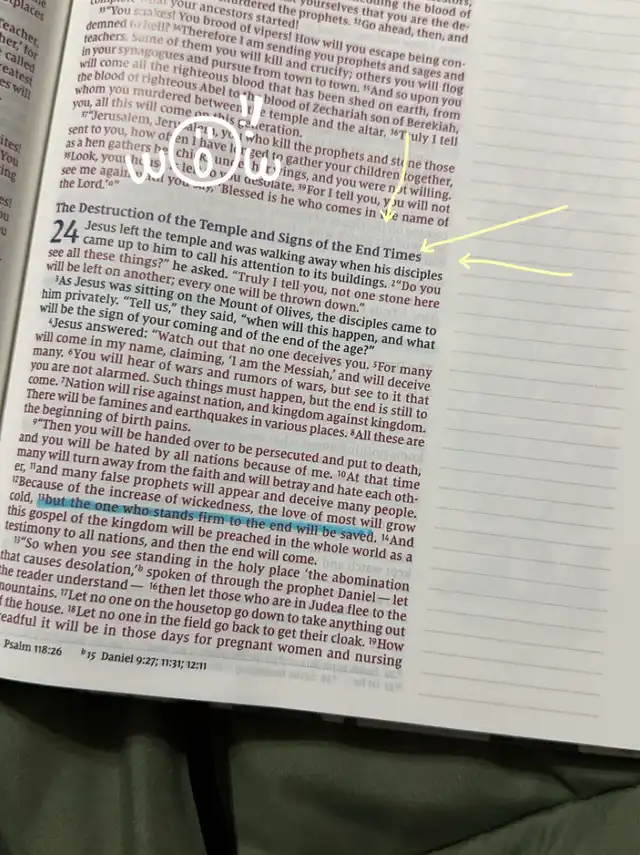 places
Teacher,
her,' for
called
reatest
es will
ites!
You
ing
es!
ou
u
yourselves that you are the de-
murdered the prophets. ³²Go ahead, then, and
what your ancestors started!
³³"You snakes! You brood of vipers! How will you escape being con-
demned to hell? ³⁴Therefore I am sending you prophets and sages and
teachers. Some of them you will kill and crucify; others you will flog
in your synagogues and pursue from town to town. ³⁵And so upon you
will come all the righteous blood that has been shed on earth, from
the blood of righteous Abel to the blood of Zechariah son of Berekiah,
whom you murdered between the temple and the altar. ³⁶Truly I tell
you, all this will come this generation.
³⁷"Jerusalem, Jerusalem, you who kill the prophets and stone those
sent to you, how often I have longed to gather your children together,
as a hen gathers her chicks wings, and you were not willing.
³⁸Look, your is left to you desolate. ³⁹For I tell you, you will not
see me again until you say, 'Blessed is he who comes in the name of
the Lord.'ᵃ"
wow!!
The Destruction of the Temple and Signs of the End Times
24 Jesus left the temple and was walking away when his disciples
came up to him to call his attention to its buildings. ²"Do you
see all these things?" he asked. "Truly I tell you, not one stone here
will be left on another; every one will be thrown down."
³As Jesus was sitting on the Mount of Olives, the disciples came to
him privately. "Tell us," they said, "when will this happen, and what
will be the sign of your coming and of the end of the age?"
⁴Jesus answered: "Watch out that no one deceives you. ⁵For many
will come in my name, claiming, 'I am the Messiah,' and will deceive
many. ⁶You will hear of wars and rumors of wars, but see to it that
you are not alarmed. Such things must happen, but the end is still to
come. ⁷Nation will rise against nation, and kingdom against kingdom.
There will be famines and earthquakes in various places. ⁸All these are
the beginning of birth pains.
⁹"Then you will be handed over to be persecuted and put to death,
and you will be hated by all nations because of me. ¹⁰At that time
many will turn away from the faith and will betray and hate each oth-
er, ¹¹and many false prophets will appear and deceive many people.
¹²Because of the increase of wickedness, the love of most will grow
cold, ¹³but the one who stands firm to the end will be saved. ¹⁴And
this gospel of the kingdom will be preached in the whole world as a
testimony to all nations, and then the end will come.
¹⁵"So when you see standing in the holy place 'the abomination
that causes desolation,'ᵇ spoken of through the prophet Daniel — let
the reader understand — ¹⁶then let those who are in Judea flee to the
mountains. ¹⁷Let no one on the housetop go down to take anything out
of the house. ¹⁸Let no one in the field go back to get their cloak. ¹⁹How
readful it will be in those days for pregnant women and nursing
Psalm 118:26 ᵇ 15 Daniel 9:27; 11:31; 12:11